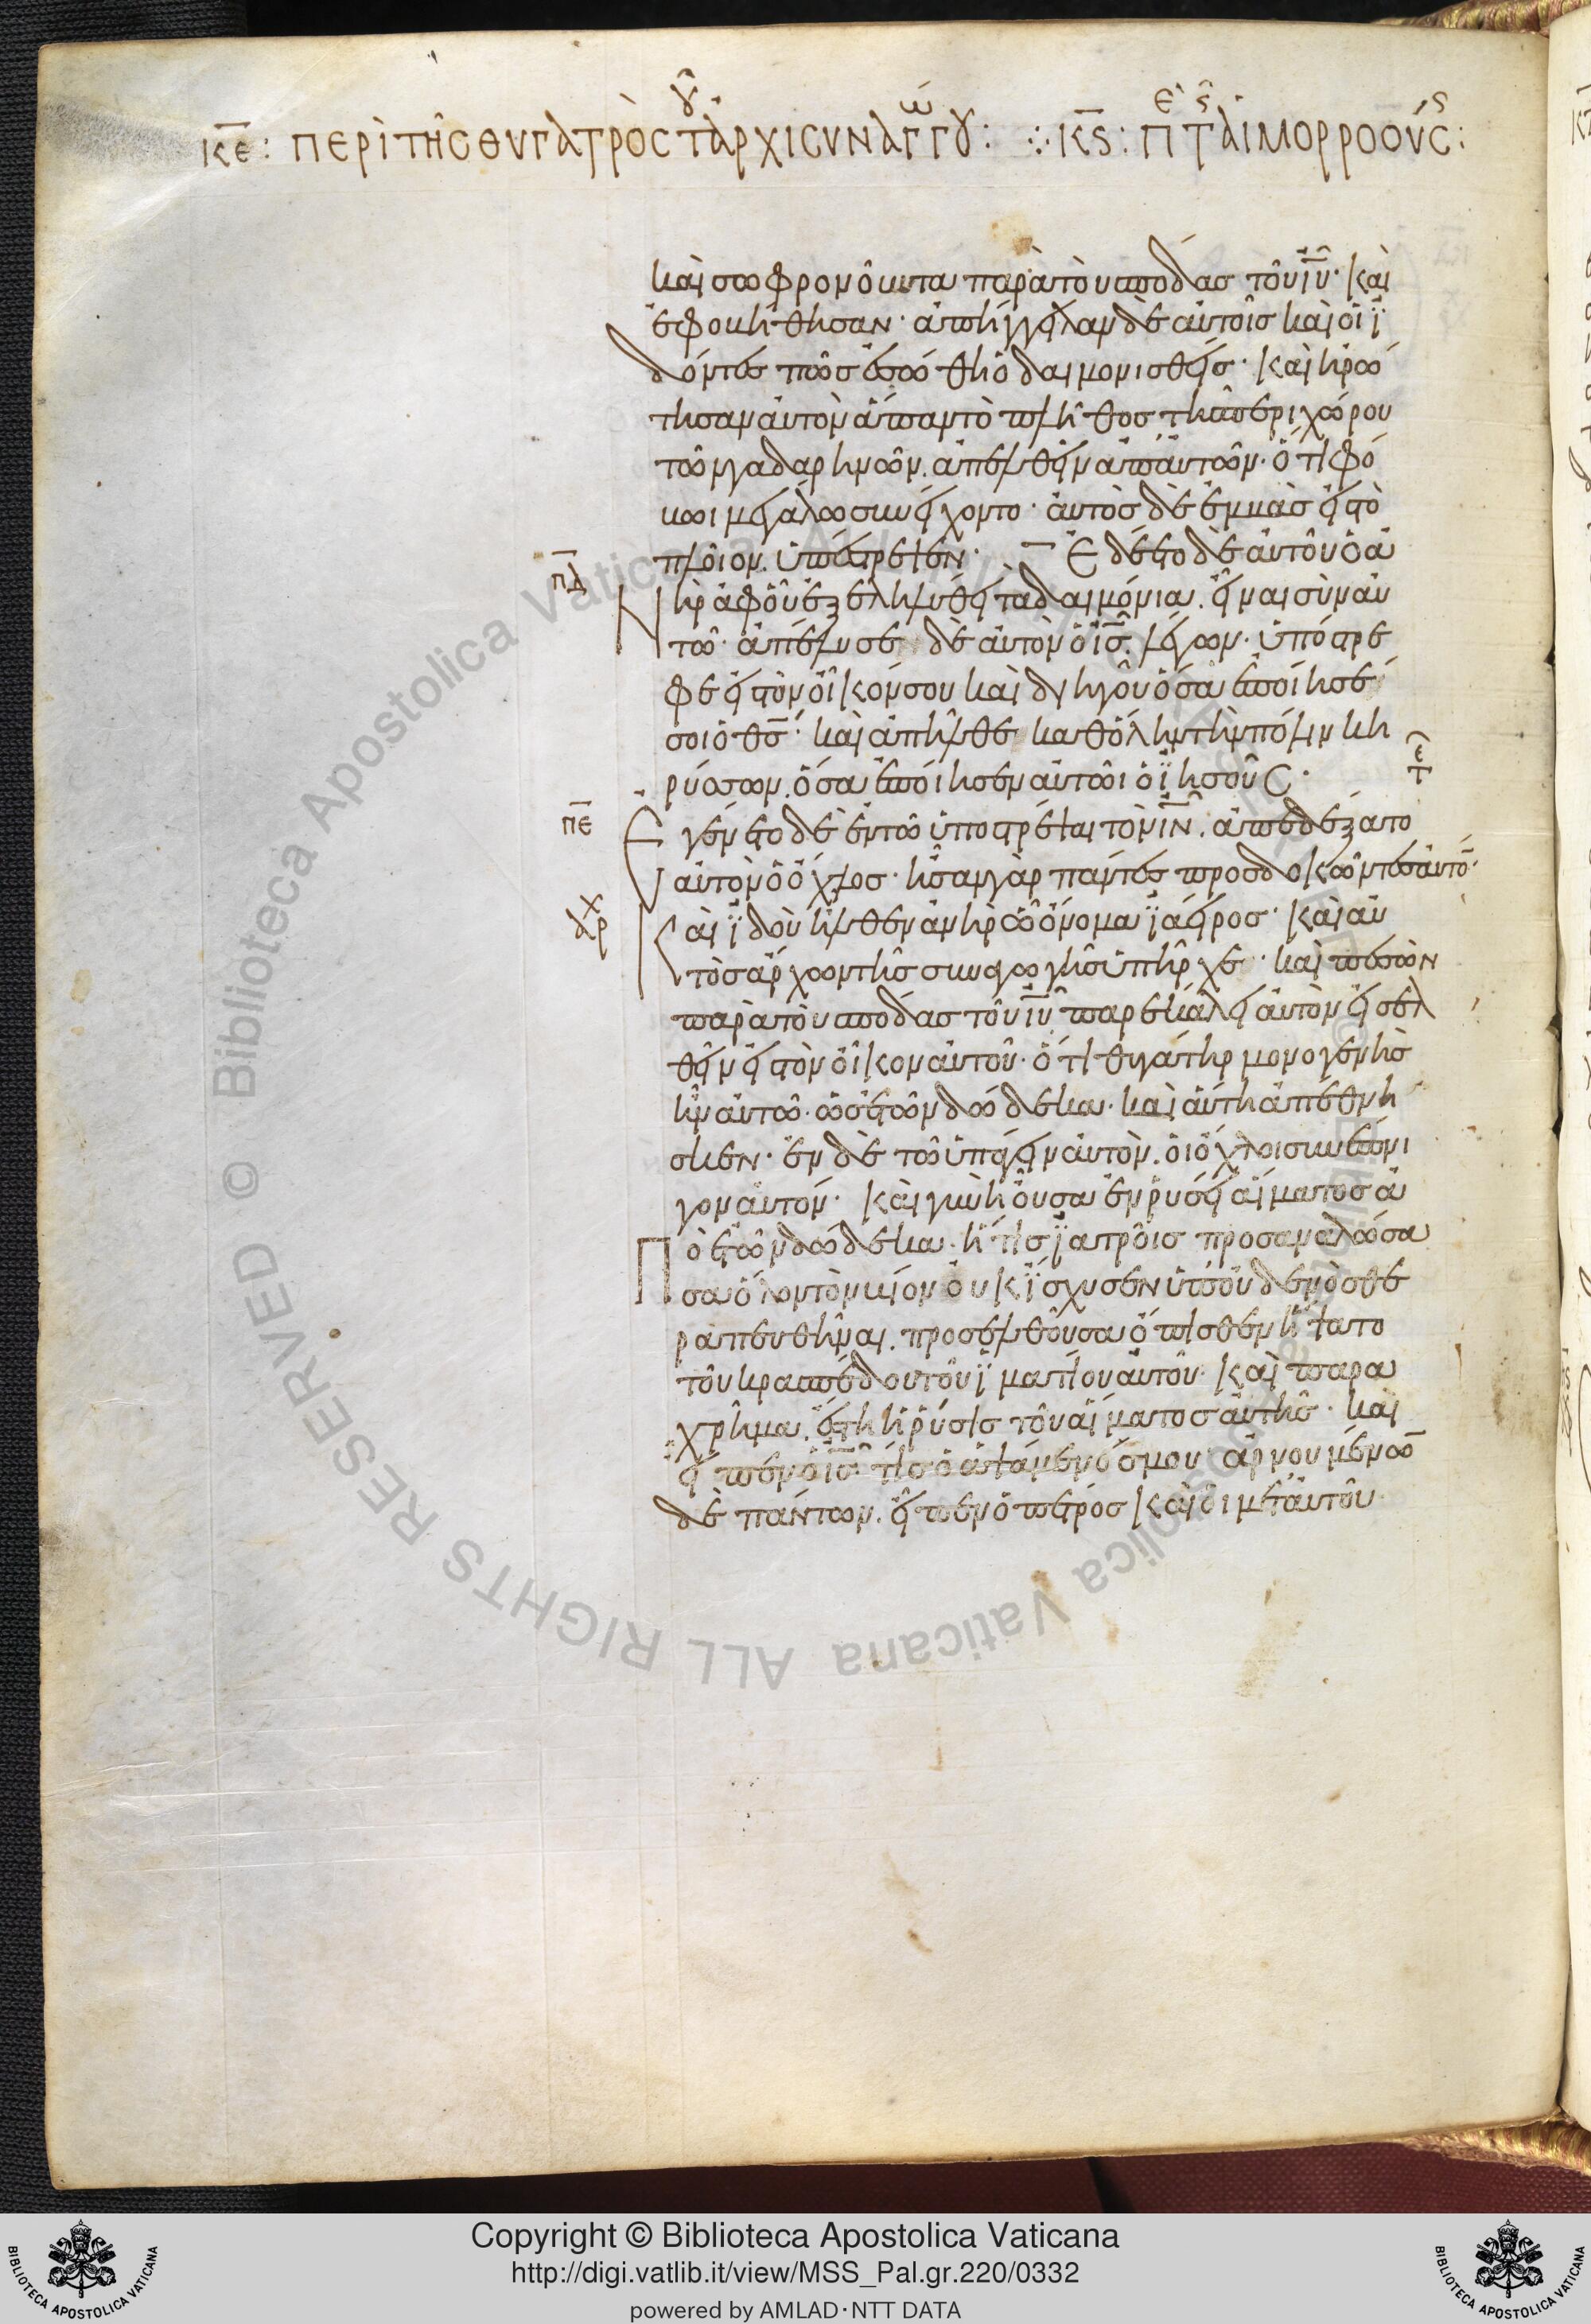 κε: περὶ τῆς θυγατρὸς τοῦ ἀρχισυναγώγου: ∴ κς: πε τῆς αἱμορροούσης:
καὶ σωφρονοῦντα παρὰ τοὺς πόδας τοῦ ιυ· καὶ
ἐφοβήθησαν· ἀπήγγειλαν δὲ αὐτοῖς καὶ οἱ ϊ
δόντες πῶς ἐσώθη ὁ δαιμονισθείς· καὶ ἠρώ
τησαν αὐτὸν ἅπαν τὸ πλῆθος τῆς περιχώρου
τῶν γαδαρηνῶν. ἀπελθεῖν ἀπ αὐτῶν· ὅτι φό
βωι μεγάλω συνείχοντο· αὐτὸς δὲ ἐμβὰς εἰς τὸ
πλοῖον. ὑπέστρεψεν· Εδέετο δὲ αὐτοῦ ὁ ἀ
πδ
νὴρ ἀφ οὗ ἐξεληλύθει τὰ δαιμόνια. εἶναι σὺν αὐ
τῶ· ἀπέλυσε δὲ αὐτὸν ὁ ις. λέγων· ὑπόστρε
φε εἰς τὸν οἶκόν σου καὶ διηγοῦ ὅσα ἐποίησέ
σοι ὁ θς· καὶ ἀπῆλθε καθ ὅλην τὴν πόλιν κη
ρύσσων. ὅσα ἐποίησεν αὐτῶι ὁ ϊησοῦς·
πε
Εγένετο δὲ ἐν τῶ ὑποστρέψαι τὸν ιν. ἀπεδέξατο
αὐτὸν ὁ ὄχλος· ἦσαν γὰρ πάντες προσδοκῶντες αὐτό·
αρχ
Καὶ ϊδοὺ ἦλθεν ἀνὴρ ὧ ὄνομα ϊάειρος· καὶ αὐ
τὸς ἄρχων τῆς συναγωγῆς ὑπῆρχε· καὶ πεσὼν
παρὰ τοὺς πόδας τοῦ ιυ παρεκάλει αὐτὸν εἰσελ
θεῖν εἰς τὸν οἶκον αὐτοῦ· ὅτι θυγάτηρ μονογενὴς
ἦν αὐτῶ· ὡς ἐτῶν δώδεκα· καὶ αὕτη ἀπέθνη
σκεν· ἐν δὲ τῶ ὑπάγειν αὐτὸν. οἱ ὄχλοι συνέπνι
γον αὐτόν· καὶ γυνὴ οὖσα ἐν ῥύσει αἵματος ἀ
πὸ ἐτῶν δώδεκα· ἥτις ϊατροῖς προσαναλώσα
σα ὅλον τὸν βίον οὐκ ΐσχυσεν ὑπ οὐδενὸς θε
ραπευθῆναι. προσελθοῦσα ὄπισθεν ἥψατο
τοῦ κρασπέδου τοῦ ϊματίου αὐτοῦ· καὶ παρα
χρῆμα. ἔστη ἡ ῥύσις τοῦ αἵματος αὐτῆς· καὶ
εἶπεν ὁ ις· τίς ὁ ἁψάμενός μου· ἀρνουμένων
δὲ πάντων. εἶπεν ὁ πέτρος καὶ οἱ μετ αὐτοῦ
© Biblioteca Apostolica Vaticana ALL RIGHTS RESERVED
Copyright © Biblioteca Apostolica Vaticana
http://digi.vatlib.it/view/MSS_Pal.gr.220/0332
powered by AMLAD·NTT DATA
BIBLIOTECA APOSTOLICA VATICANA
BIBLIOTECA APOSTOLICA VATICANA